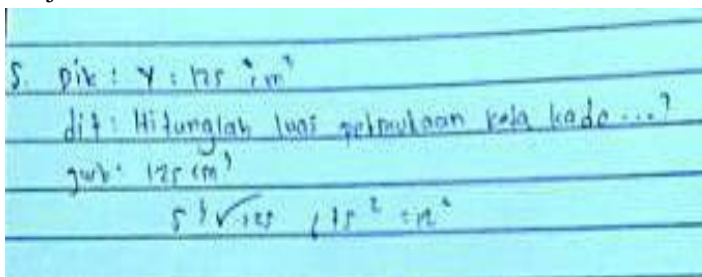 5. Dik : V : 125 cm³
dit : Hitunglah luas permukaan kado ...?
jwb : 125 cm³
5 ³√125